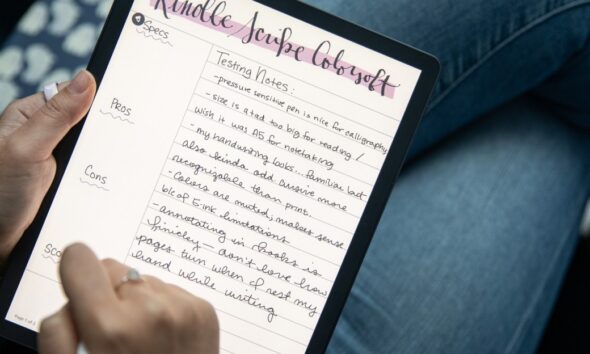 Kindle Scribe Colorsoft
Specs
Pros
Cons
Testing Notes:
-pressure sensitive pen is nice for calligraphy
- size is a tad too big for reading /
wish it was A5 for notetaking
- my handwriting looks... familiar but
also kinda odd cursive more
recognizable than print.
- Colors are muted, makes sense
blc of E-ink limitations
- annotating in books is
finicky - don't love how
pages turn when I rest my
hand while writing
Page 1 of